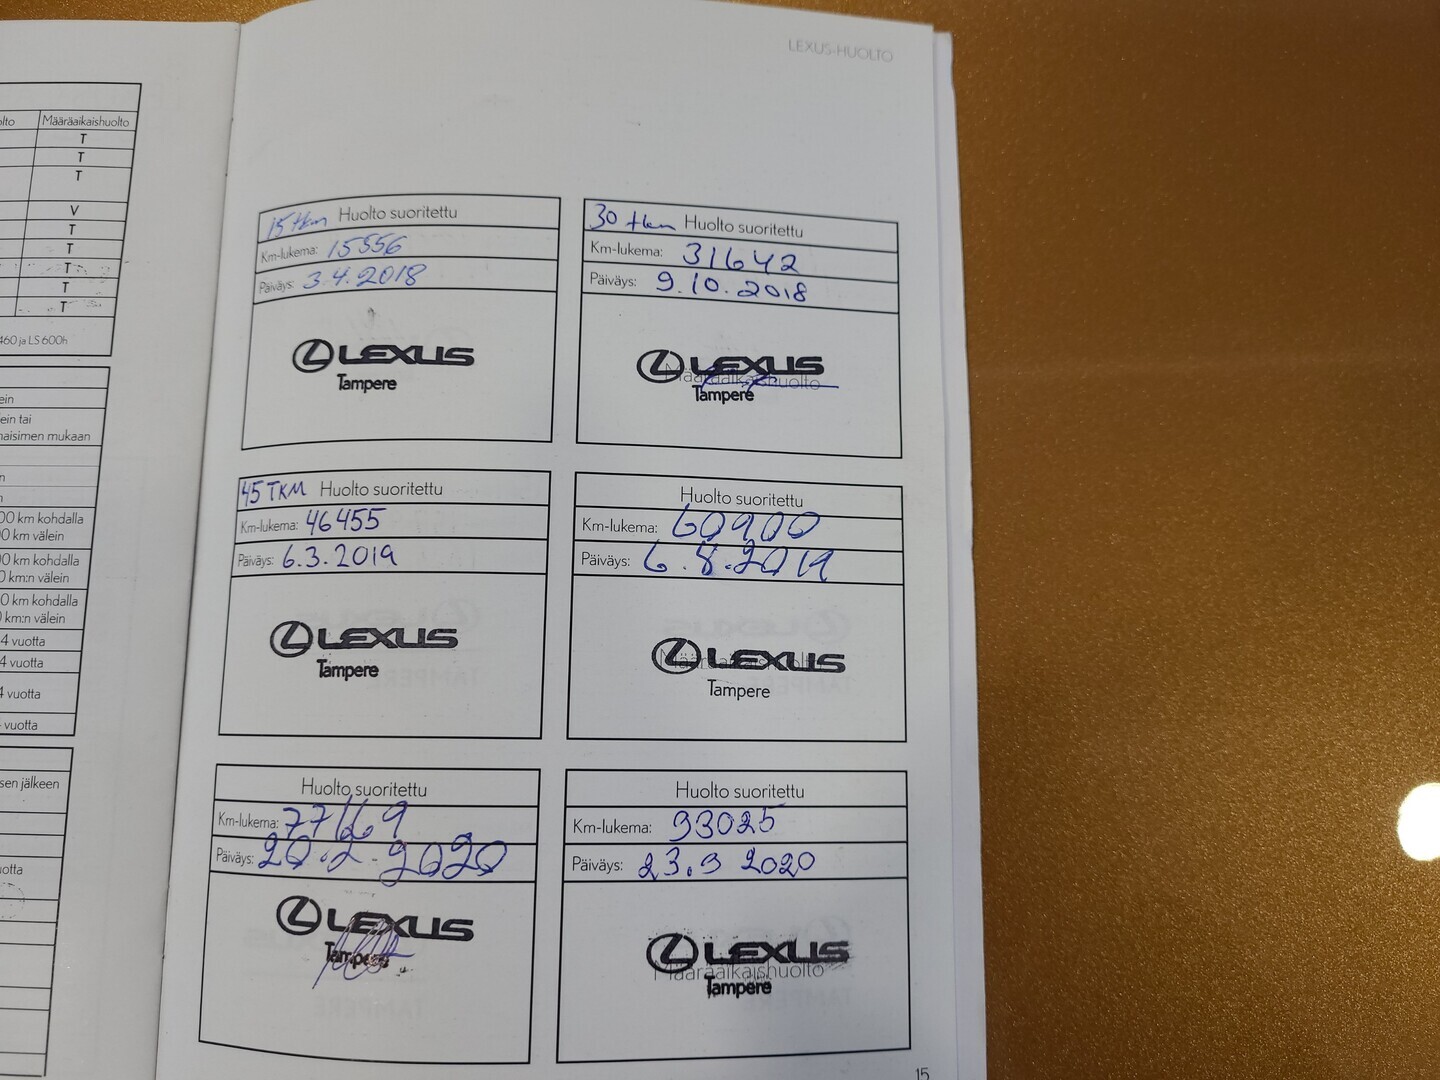 LEXUS-HUOLTO
Määräaikaishuolto
T
T
T
V
T
T
T
T
T
460 ja LS 600h
ein
ein tai
naisimen mukaan
00 km kohdalla
00 km välein
00 km kohdalla
0 km:n välein
0 km kohdalla
) km:n välein
4 vuotta
4 vuotta
4 vuotta
vuotta
sen jälkeen
15 tkm Huolto suoritettu
Km-lukema: 15556
Päiväys: 3.4.2018
LEXUS
Tampere
30 tkm Huolto suoritettu
Km-lukema: 31642
Päiväys: 9.10.2018
LEXUS
Määräaikaishuolto
Tampere
45 TKM Huolto suoritettu
Km-lukema: 46455
Päiväys: 6.3.2019
LEXUS
Tampere
Huolto suoritettu
Km-lukema: 60900
Päiväys: 6.8.2019
LEXUS
Määräaikaishuolto
Tampere
Huolto suoritettu
Km-lukema: 77169
Päiväys: 20.2.2020
LEXUS
Tampere
Huolto suoritettu
Km-lukema: 93025
Päiväys: 23.9 2020
LEXUS
Määräaikaishuolto
Tampere
15